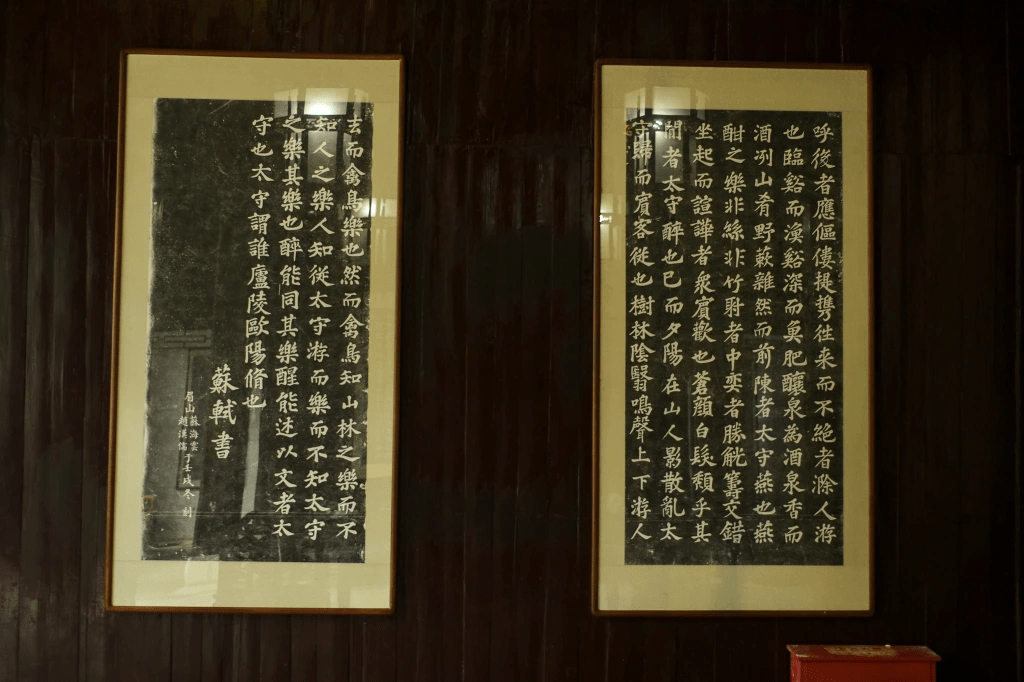 呼後者應傴僂提攜往来而不絶者滁人游
也臨谿而漁谿深而魚肥釀泉為酒泉香而
酒冽山肴野蔌雜然而前陳者太守燕也燕
酣之樂非絲非竹射者中奕者勝觥籌交錯
坐起而諠譁者衆賓歡也蒼顔白髮頹乎其
間者太守醉也已而夕陽在山人影散亂太
守歸而賓客從也樹林陰翳鳴聲上下游人
去而禽鳥樂也然而禽鳥知山林之樂而不
知人之樂人知從太守游而樂而不知太守
之樂其樂也醉能同其樂醒能述以文者太
守也太守謂誰廬陵歐陽脩也
蘇軾書
眉山蘇海雲于壬戌冬刻
趙漢儒